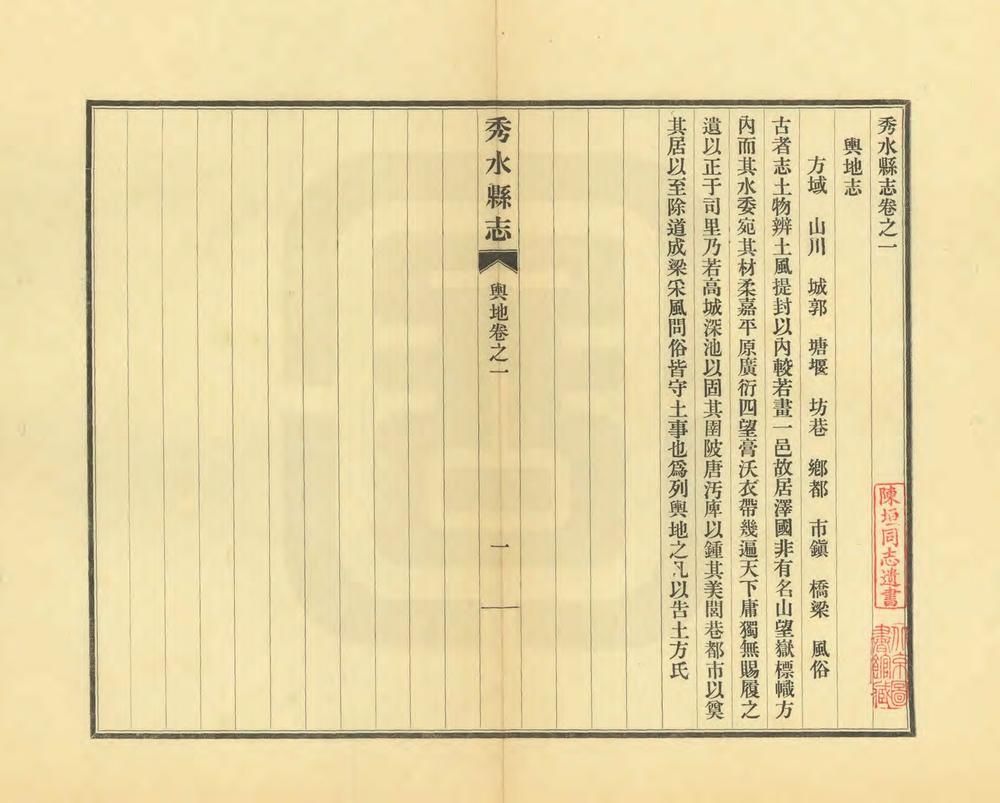 秀水縣志卷之一
輿地志
方域 山川 城郭 塘堰 坊巷 鄉都 市鎭 橋梁 風俗
古者志土物辨土風提封以內較若畫一邑故居澤國非有名山望嶽標幟方
內而其水委宛其材柔嘉平原廣衍四望膏沃衣帶幾遍天下庸獨無賜履之
遺以正于司里乃若高城深池以固其圉陂唐汚庳以鍾其美閭巷都市以奠
其居以至除道成梁采風問俗皆守土事也爲列輿地之凡以告土方氏
秀水縣志
輿地卷之一
一
陳垣同志遺書
北京圖
書館藏